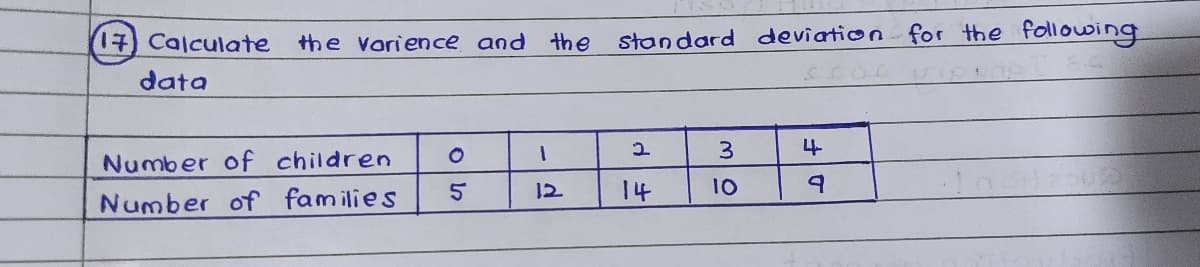 17 Calculate the varience and the standard deviation for the following
data
Number of children 0 1 2 3 4
Number of families 5 12 14 10 9